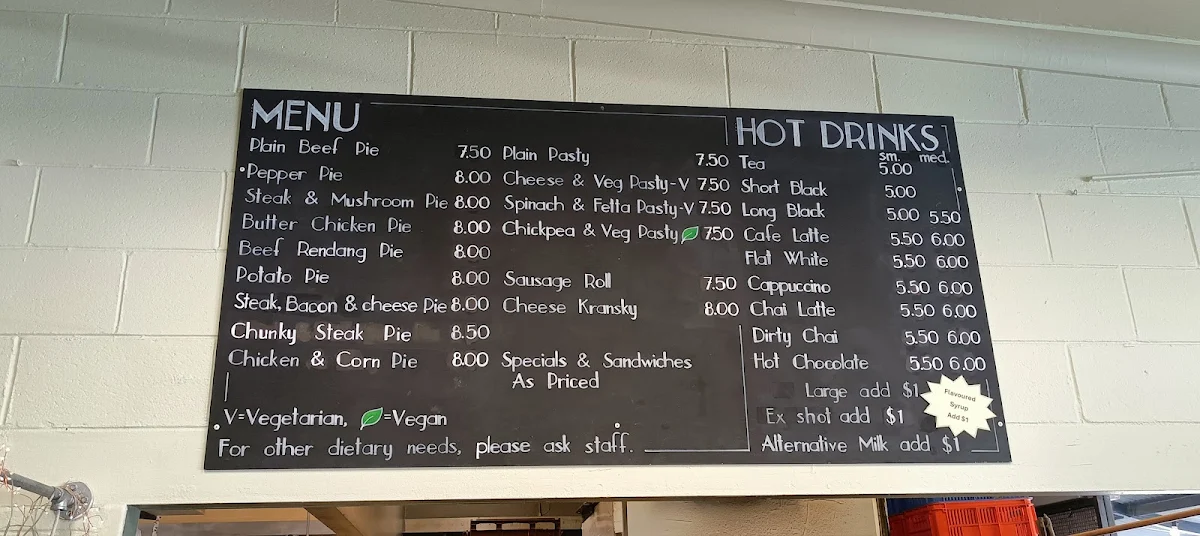 MENU
Plain Beef Pie 7.50
Pepper Pie 8.00
Steak & Mushroom Pie 8.00
Butter Chicken Pie 8.00
Beef Rendang Pie 8.00
Potato Pie 8.00
Steak, Bacon & cheese Pie 8.00
Chunky Steak Pie 8.50
Chicken & Corn Pie 8.00
V=Vegetarian, =Vegan
For other dietary needs, please ask staff.
Plain Pasty 7.50
Cheese & Veg Pasty-V 7.50
Spinach & Fetta Pasty-V 7.50
Chickpea & Veg Pasty 7.50
Sausage Roll 7.50
Cheese Kransky 8.00
Specials & Sandwiches
As Priced
HOT DRINKS
sm. med.
Tea 5.00
Short Black 5.00
Long Black 5.00 5.50
Cafe Latte 5.50 6.00
Flat White 5.50 6.00
Cappuccino 5.50 6.00
Chai Latte 5.50 6.00
Dirty Chai 5.50 6.00
Hot Chocolate 5.50 6.00
Large add $1
Ex shot add $1
Alternative Milk add $1
Flavoured
Syrup
Add $1